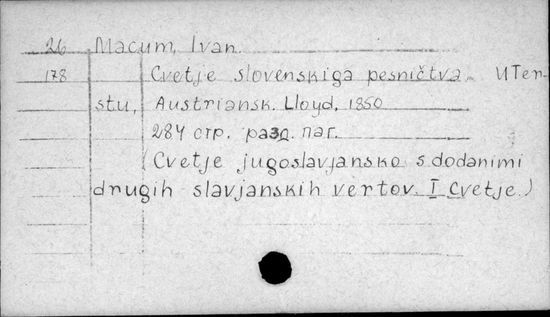 26 Macum, Ivan.
178 Cvetje slovenskiga pesničtva. UTer-
stu, Austriansk. Lloyd, 1850
284 стр. разд. паг.
(Cvetje jugoslavjansko s dodanimi
drugih slavjanskih vertov. I Cvetje.)